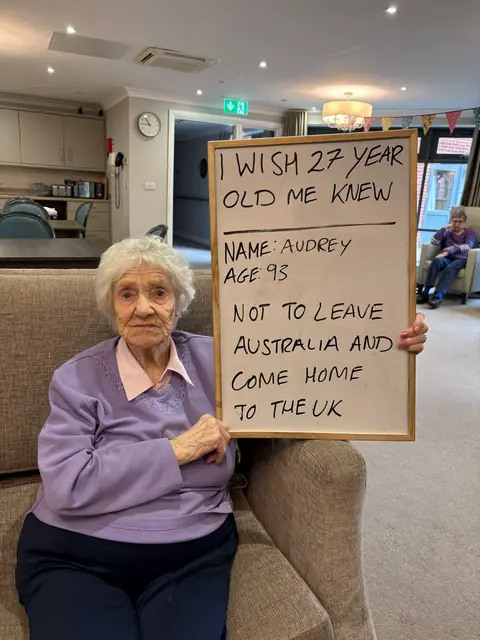 I WISH 27 YEAR
OLD ME KNEW
NAME: AUDREY
AGE: 93
NOT TO LEAVE
AUSTRALIA AND
COME HOME
TO THE UK